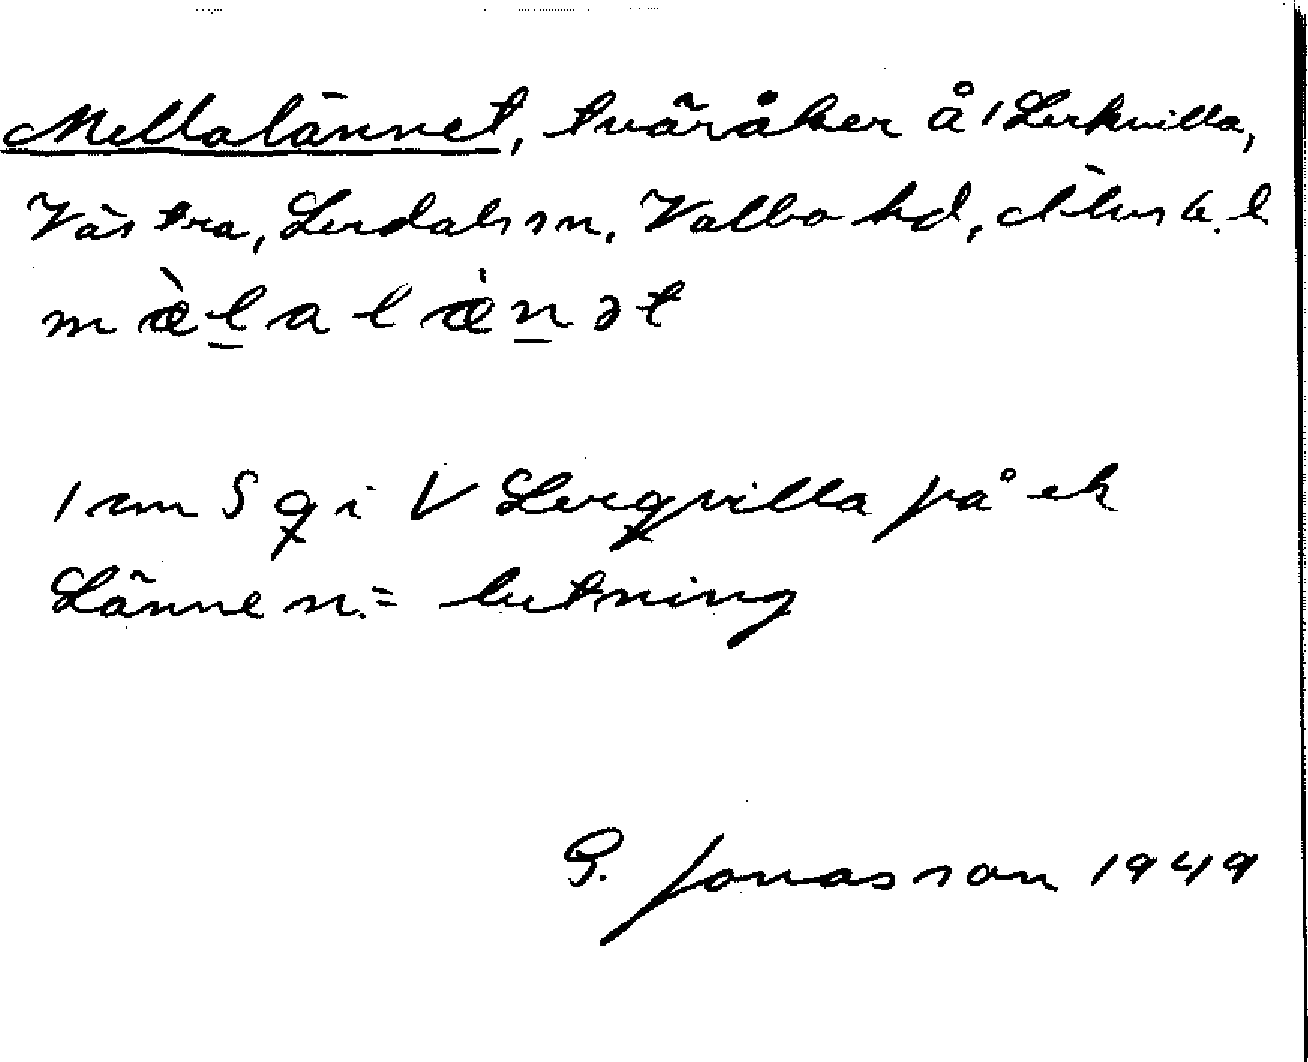 Mellalännet, tväråker å 1 Lerkvilla,
Västra, Lerdals sn, Valbo hd, Älvsb. l
mæ̀lalæ̀nət
1 cm S q i V Lerqvilla på ek
Länne n. = lutning
G. Jonasson 1949